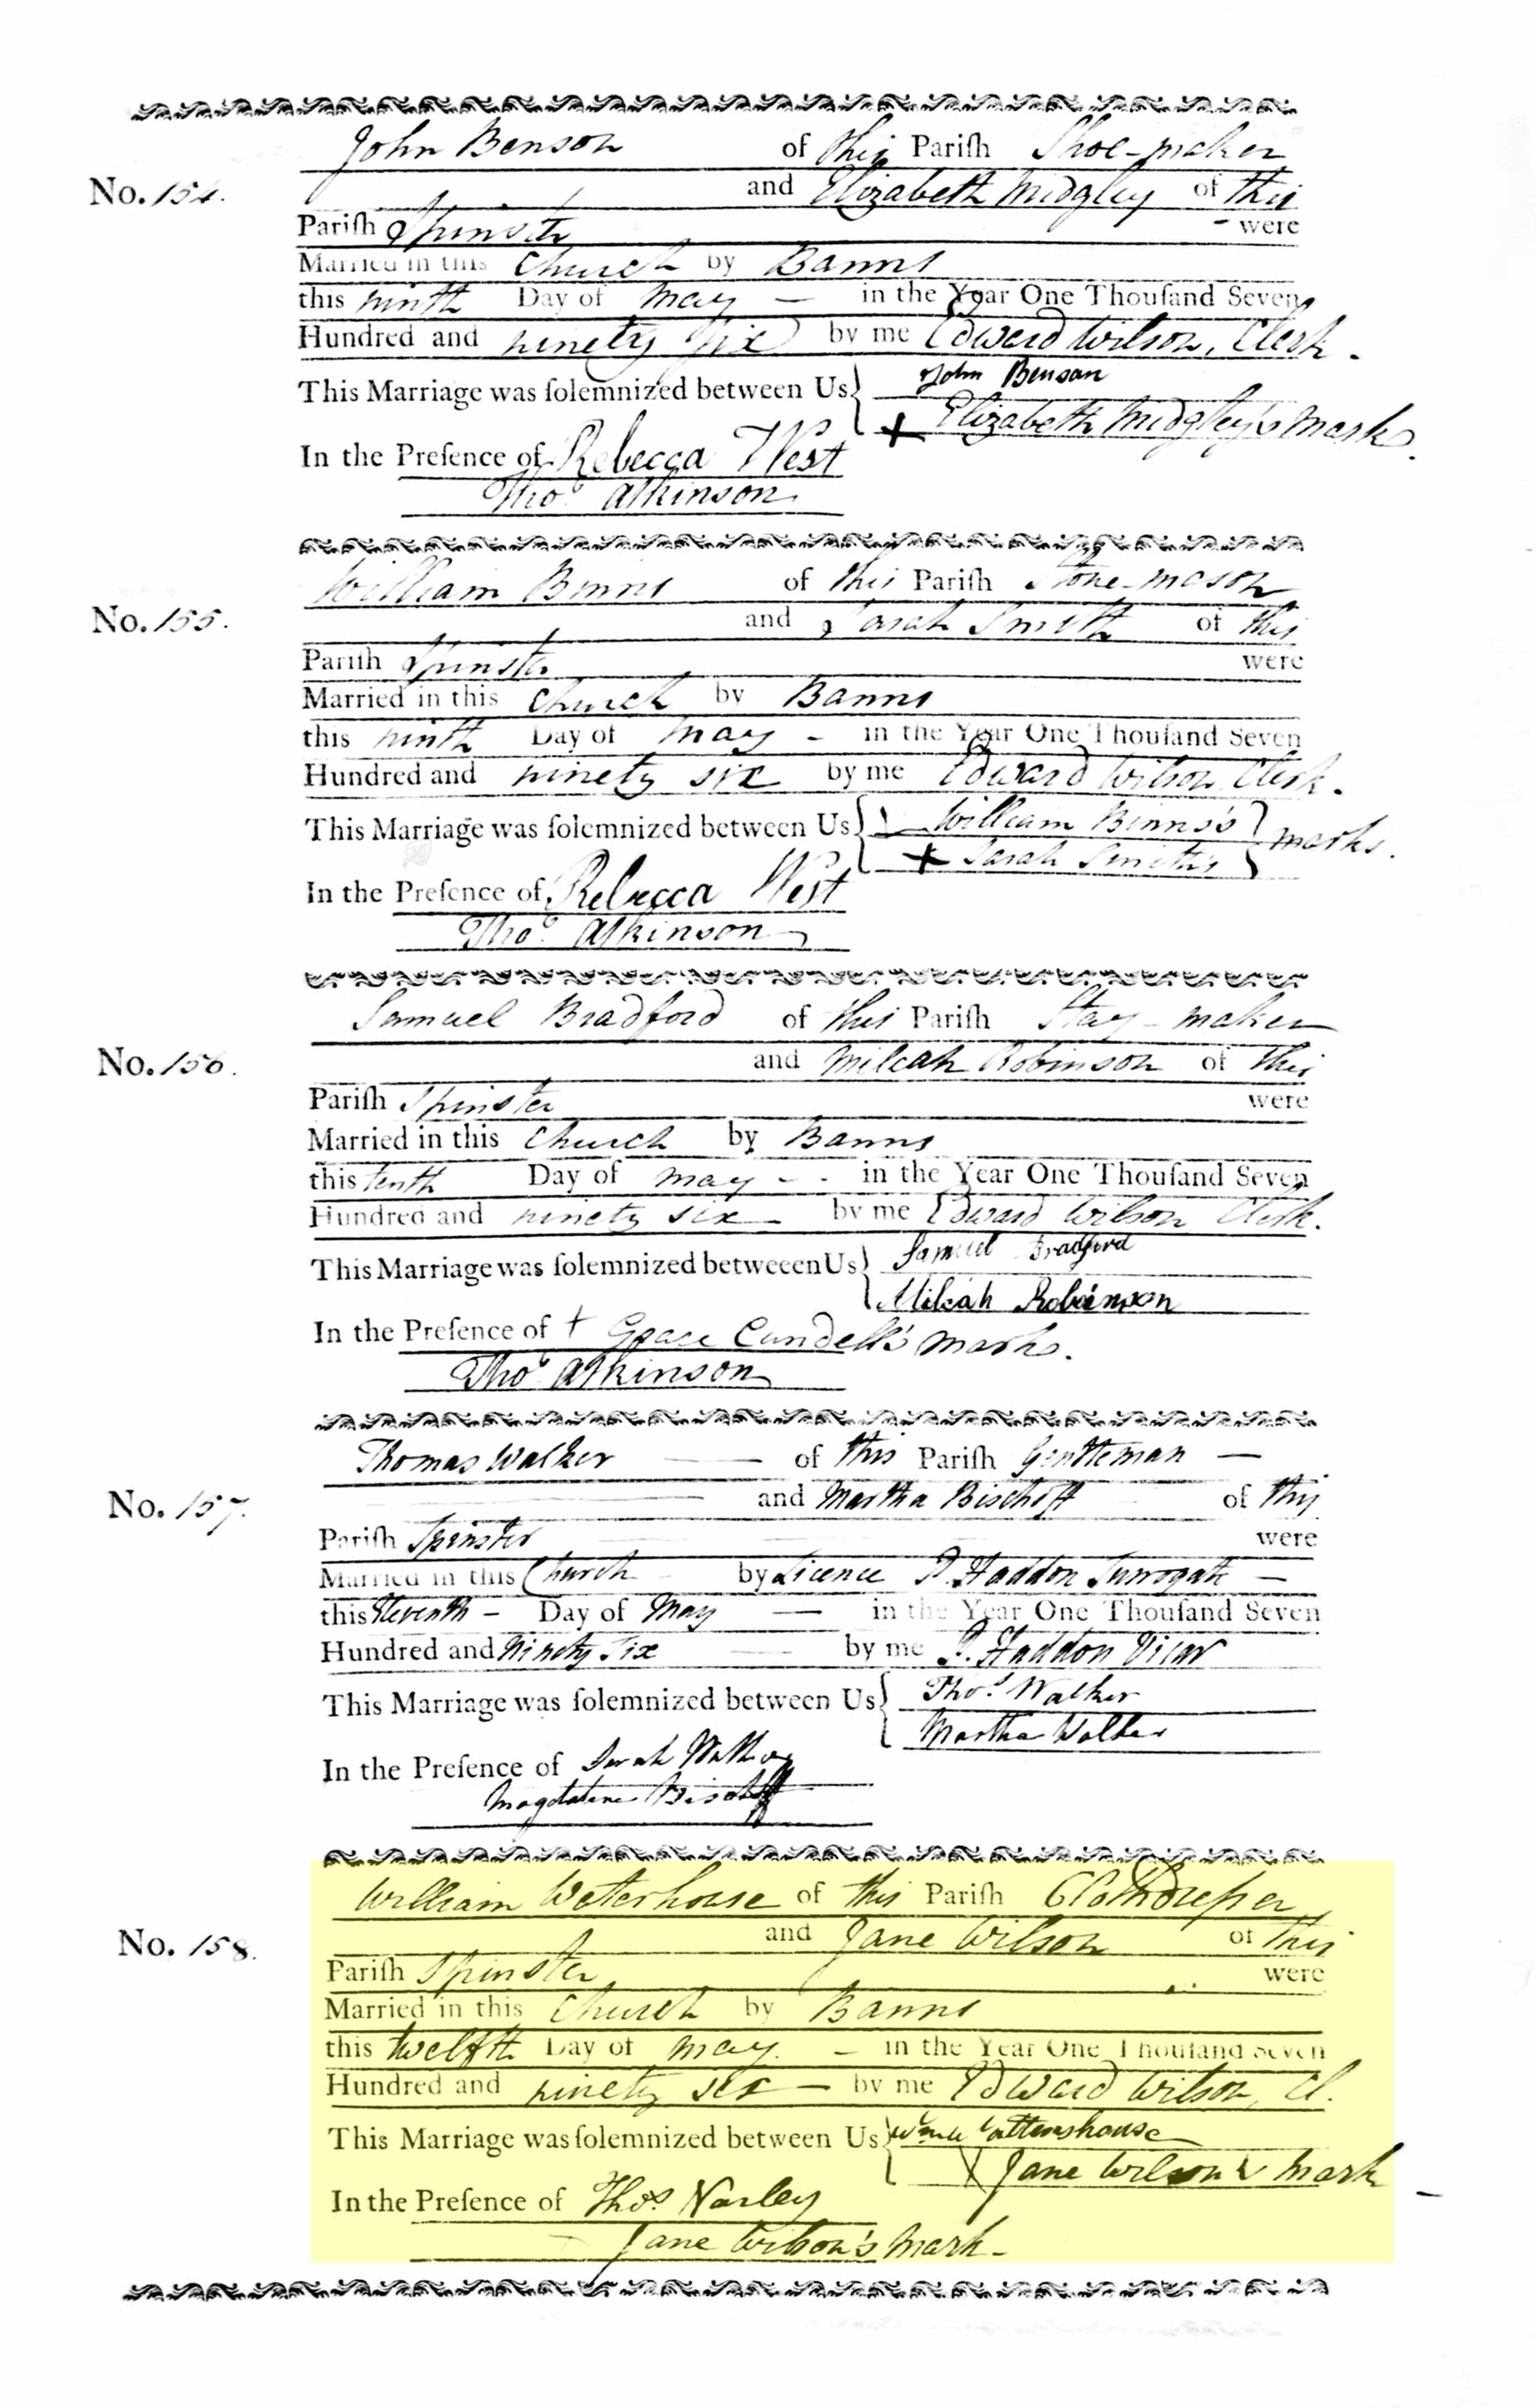 John Benson of this Pariſh Shoe-maker
No. 154. and Elizabeth Midgley of this
Pariſh Spinster were
Married in this Church by Banns
this ninth Day of May — in the Year One Thouſand Seven
Hundred and ninety six by me Edward Wilson, Clerk.
This Marriage was ſolemnized between Us John Benson
+ Elizabeth Midgley's Mark.
In the Preſence of Rebecca West
Thos. Atkinson
William Binns of this Pariſh Stone-mason
No. 155. and Sarah Smith of this
Pariſh Spinster were
Married in this Church by Banns
this ninth Day of May - in the Year One Thouſand Seven
Hundred and ninety six by me Edward Wilson Clerk.
This Marriage was ſolemnized between Us William Binns's
+ Sarah Smith's marks.
In the Preſence of Rebecca West
Thos. Atkinson
Samuel Bradford of this Pariſh Stay-maker
No. 156. and Milcah Robinson of this
Pariſh Spinster were
Married in this Church by Banns
this tenth Day of May - - in the Year One Thouſand Seven
Hundred and ninety six — by me Edward Wilson Clerk.
This Marriage was ſolemnized betweeen Us Samuel Bradford
Milcah Robinson
In the Preſence of + Grace Cundell's Mark.
Thos. Atkinson
Thomas Walker — of this Pariſh Gentleman —
No. 157. and Martha Bischoff of this
Pariſh Spinster were
Married in this Church by Licence P. Haddon Surrogate —
this Eleventh - Day of May — in the Year One Thouſand Seven
Hundred and Ninety Six — by me P. Haddon Vicar
This Marriage was ſolemnized between Us Thos. Walker
Martha Walker
In the Preſence of Sarah Walker
Magdalene Bischoff
William Waterhouse of this Pariſh Clothdresser
No. 158. and Jane Wilson of this
Pariſh Spinster were
Married in this Church by Banns
this twelfth Day of May. — in the Year One Thouſand Seven
Hundred and ninety six — by me Edward Wilson, Cl.
This Marriage was ſolemnized between Us Wm Wattershouse
X Jane Wilson's Mark
In the Preſence of Thos. Varley
Jane Wilson's Mark -